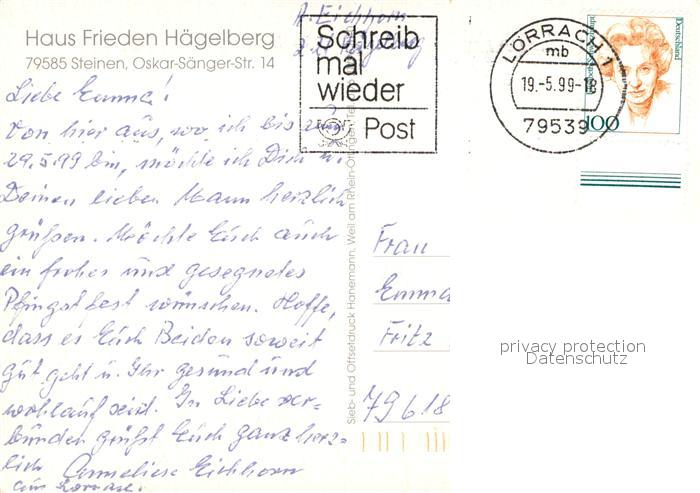 Haus Frieden Hägelberg
79585 Steinen, Oskar-Sänger-Str. 14
A. Eichhorn
Schreib
mal
wieder
Post
LÖRRACH 1
mb
19.-5.99-18
79539
Deutschland
100
Liebe Emma!
Von hier aus, wo ich bis zum
29.5.99 bin, möchte ich Dich u.
Deinen lieben Mann herzlich
grüßen. Möchte Euch auch
ein frohes und gesegnetes
Pfingstfest wünschen. Hoffe,
dass es Euch Beiden soweit
gut geht u. Ihr gesund und
wohlauf seid. In Liebe ver-
bunden grüßt Euch ganz herz-
lich Anneliese Eichhorn
aus
Sieb- und Offsetdruck Hanemann, Weil am Rhein-Ötlingen
Frau
Emma
Fritz
79618
privacy protection
Datenschutz